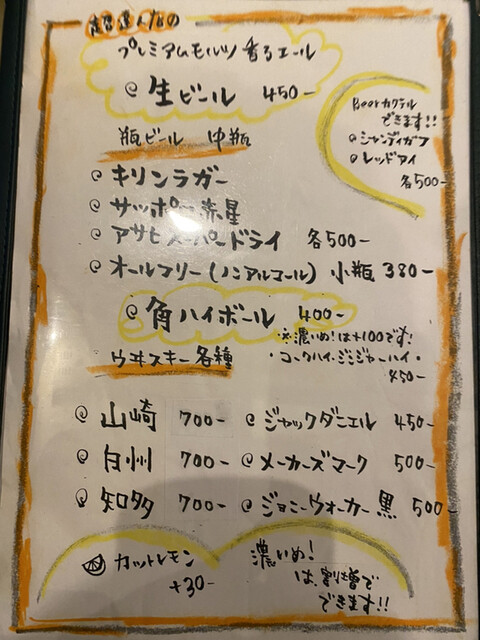 超達人店の
プレミアムモルツ 香るエール
生ビール 450-
Beerカクテル
できます!!
シャンディガフ
レッドアイ
各500-
瓶ビール 中瓶
キリンラガー
サッポロ赤星
アサヒスーパードライ 各500-
オールフリー(ノンアルコール) 小瓶 380-
角ハイボール 400-
※濃いめ!は+100です!
・コークハイ・ジンジャーハイ・
450-
ウヰスキー各種
山崎 700- ジャックダニエル 450-
白州 700- メーカーズマーク 500-
知多 700- ジョニーウォーカー黒 500-
カットレモン
+30-
濃いめ!
は、割増で
できます!!